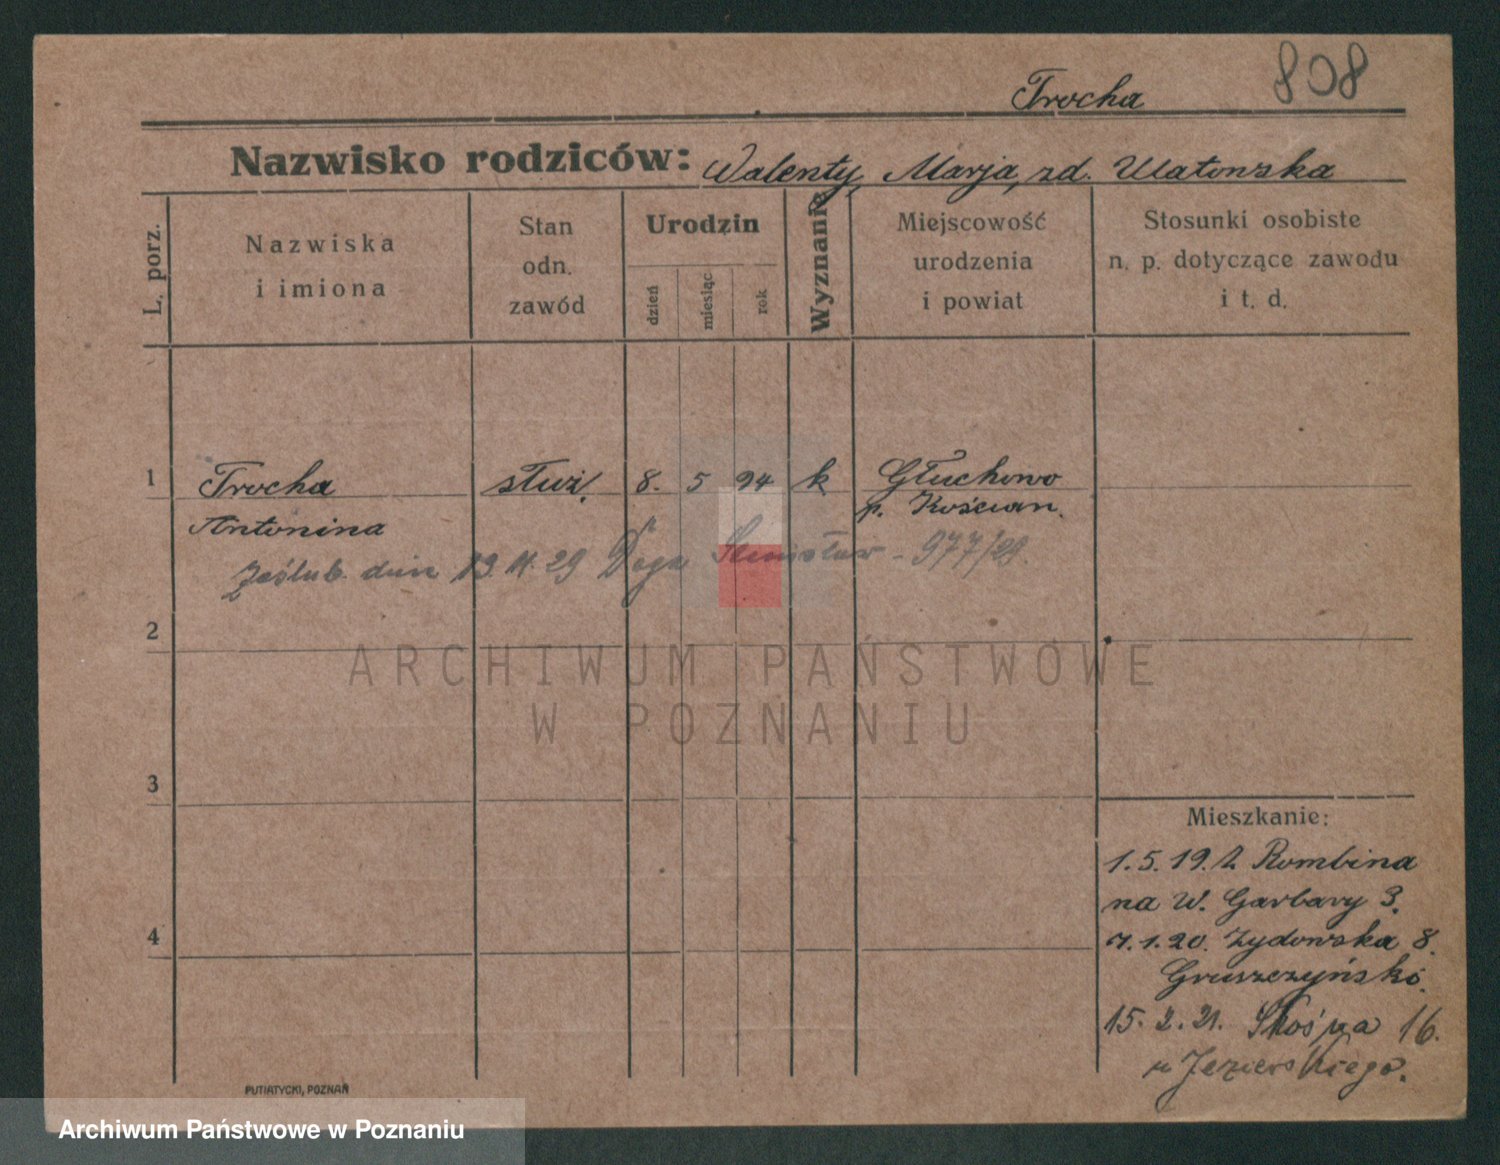 808
Trocha
Nazwisko rodziców: Walenty, Marja, zd. Ulatowska
L. porz.
Nazwiska
i imiona
Stan
odn.
zawód
Urodzin
dzień
miesiąc
rok
Wyznanie
Miejscowość
urodzenia
i powiat
Stosunki osobiste
n. p. dotyczące zawodu
i t. d.
1 Trocha służ. 8. 5 94 k Głuchowo
Antonina p. Kościan.
Zaślub. dnia 19. 29 Doga Stanisław - 977/29.
2
ARCHIWUM PAŃSTWOWE
W POZNANIU
3
4
Mieszkanie:
1.5.19. Z Rombina
na W. Garbary 3.
7.1.20. Żydowska 8.
Gruszczyński.
15. 2. 21. Skośna 16.
u Jezierskiego.
PUTIATYCKI, POZNAŃ
Archiwum Państwowe w Poznaniu